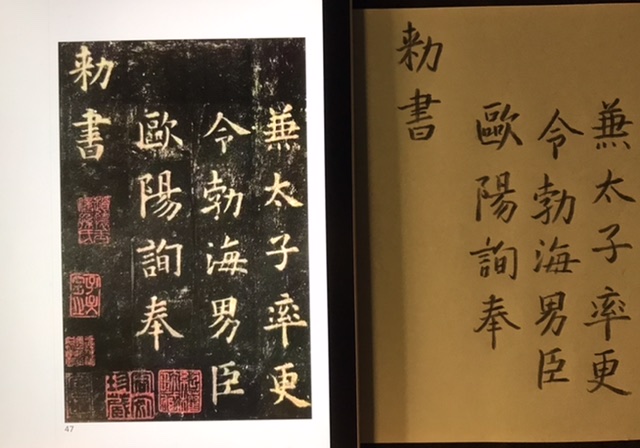 兼太子率更
令勃海男臣
歐陽詢奉
勑書
47
兼太子率更
令勃海男臣
歐陽詢奉
勑書